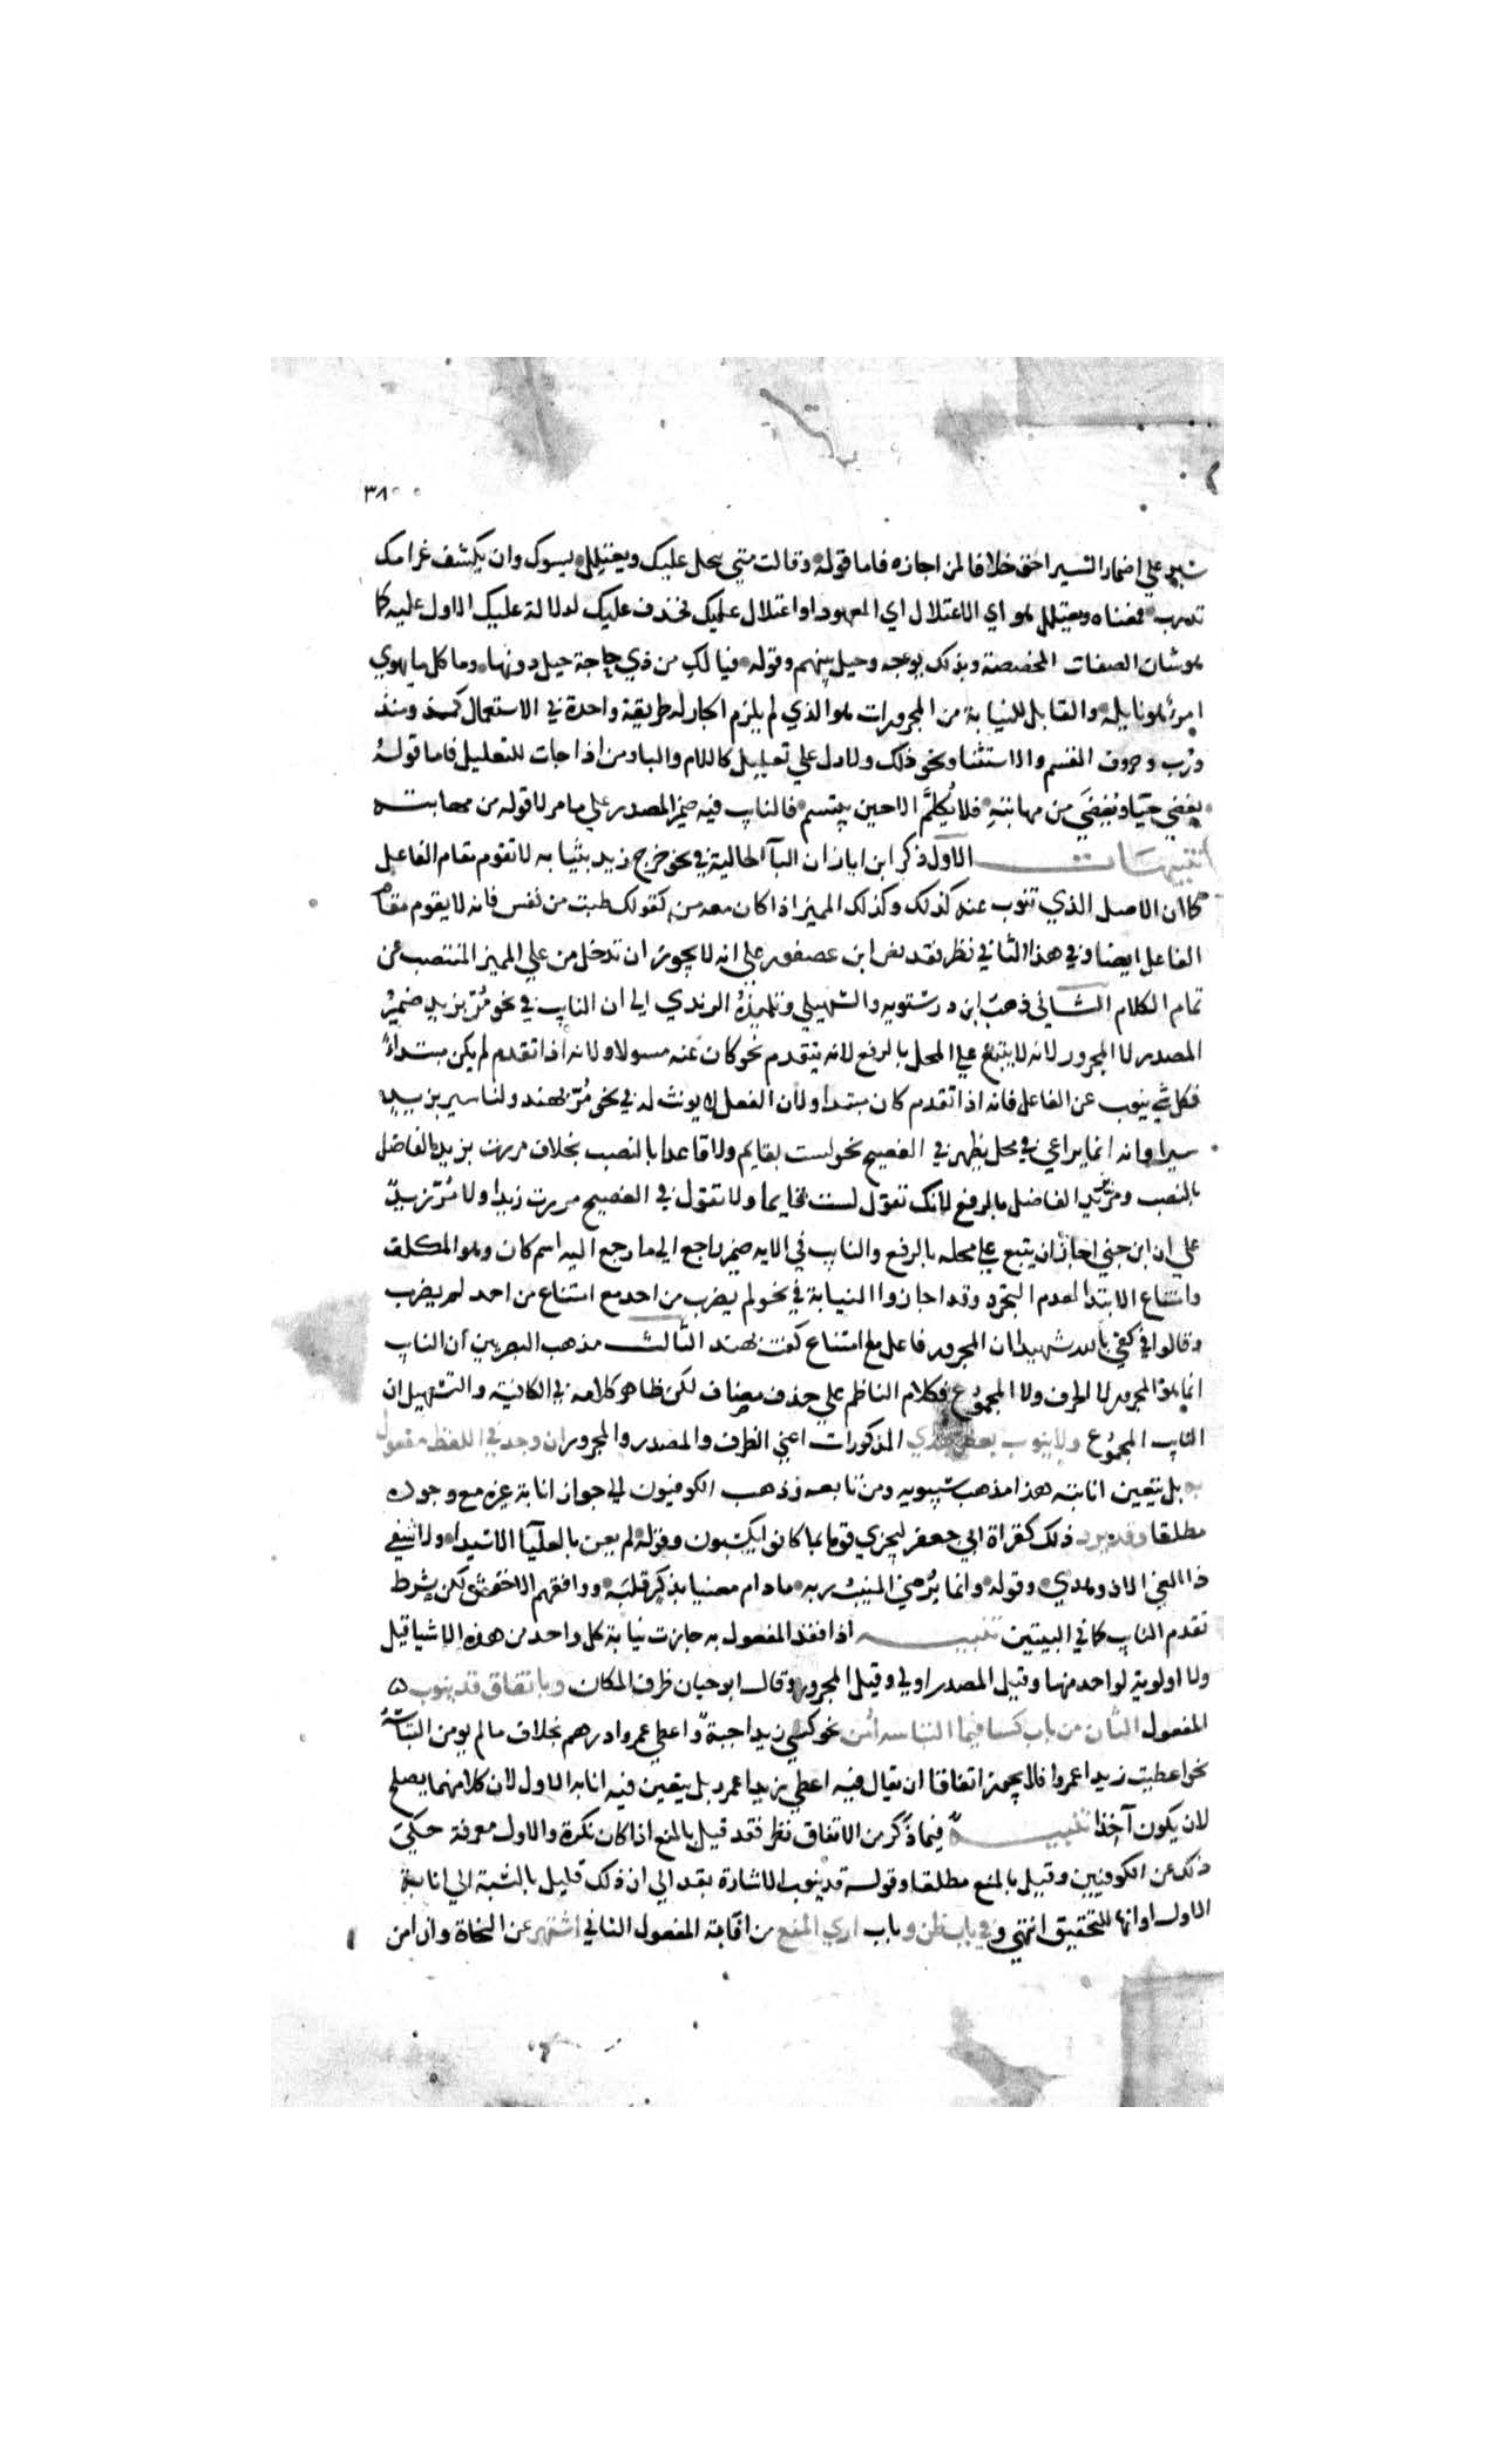 ٣٨
سير علي اضمار السير احق خلافا لمن اجازه فاما قوله وقالت متي يبخل عليك ويعتلل يسوك وان يكشف غرامك
تدرب فمعناه ويعتلل هو اي الاعتلال اي المعهود او اعتلال عليك فحذف عليك لدلالة عليك الاول عليه كما
هو شان الصفات المخصصة وبذلك يوجه وحيل بينهم وقوله فيا لك من ذي حاجة حيل دونها وما كل ما يهوي
امرؤ هو نايله والقابل للنيابة من المجرورات هو الذي لم يلزم الجار له طريقة واحدة في الاستعمال كمذ ومنذ
ورب وحروف القسم والاستثنا ونحو ذلك ولا دل علي تعليل كاللام والبا ومن اذا جات للتعليل فاما قوله
يغضي حيا ويغضي من مهابته فلا يكلم الا حين يبتسم فالنايب فيه ضمير المصدر علي ما مر لا قوله من مهابته
تنبيهات الاول ذكر ابن اياز ان البآ الحالية في نحو خرج زيد بثيابه لا تقوم مقام الفاعل
كما ان الاصل الذي تنوب عنه كذلك وكذلك المميز اذا كان معه من كقولك طبت من نفس فانه لا يقوم مقام
الفاعل ايضا وفي هذا الثاني نظر فقد نص ابن عصفور علي انه لا يجوز ان تدخل من علي المميز المنتصب عن
تمام الكلام الثاني ذهب ابن درستويه والسهيلي وتلميذه الرندي الي ان النايب في نحو مر بزيد ضمير
المصدر لا المجرور لانه لا يتبع علي المحل بالرفع لانه يتقدم نحو كان عنه مسولا ولانه اذا تقدم لم يكن مبتداء
فكل شي ينوب عن الفاعل فانه اذا تقدم كان مبتدا ولان الفعل لا يونث له في نحو مر بهند ولنا سير بزيد
سيرا وانه انما يراعي في محل يظهر في الفصيح نحو لست بقايم ولا قاعدا بالنصب بخلاف مررت بزيد الفاضل
بالنصب ومر بزيد الفاضل بالرفع لانك تقول لست قايما ولا تقول في الفصيح مررت زيدا ولا مر زيد
علي ان ابن جني اجاز ان يتبع علي محله بالرفع والنايب في الايه ضمير راجع الي ما رجع اليه اسم كان وهو المكلف
وامتناع الابتدا لعدم التجرد وقد اجازوا النيابة في نحو لم يضرب من احد مع امتناع من احد لم يضرب
وقالوا في كفي بالله شهيدا ان المجرور فاعل مع امتناع كفت بهند الثالث مذهب البصريين ان النايب
انما هو المجرور لا الحرف ولا المجموع فكلام الناظم علي حذف مضاف لكن ظاهر كلامه في الكافية والتسهيل ان
النايب المجموع ولا ينوب بعض هذي المذكورات اعني الظرف والمصدر والمجرور ان وجد في اللفظ مفعول
به بل يتعين انابته هذا مذهب سيبويه ومن تابعه وذهب الكوفيون الي جواز انابة غيره مع وجوده
مطلقا وقد يرد ذلك كقراة ابي جعفر ليجزي قوما بما كانوا يكسبون وقوله لم يعن بالعليآ الا سيدا ولا شفي
ذا الغي الا ذو هدي وقوله وانما يرضي المنيب ربه ما دام معنيا بذكر قلبه ووافقهم الاخفش لكن بشرط
تقدم النايب كما في البيتين تنبيه اذا فقد المفعول به جازت نيابة كل واحد من هذه الاشيا قيل
ولا اولوية لواحد منها وقيل المصدر اولي وقيل المجرور وقال ابو حيان ظرف المكان وباتفاق قد ينوب
المفعول الثان من باب كسا فيما التباسه امن نحو كسي زيدا جبة واعطي عمروا درهم بخلاف ما لم يومن التباسه
نحو اعطيت زيدا عمروا فلا يجوز اتفاقا ان يقال فيه اعطي زيدا عمرو بل يتعين فيه انابه الاول لان كلا منهما يصلح
لان يكون آخذا تنبيه فيما ذكر من الاتفاق نظر فقد قيل بالمنع اذا كان نكرة والاول معرفة حكي
ذلك عن الكوفيين وقيل بالمنع مطلقا وقوله قد ينوب الاشارة بقد الي ان ذلك قليل بالنسبة الي انابة
الاول او انها للتحقيق انتهي وفي باب ظن وباب اري المنع من اقامة المفعول الثاني اشتهر عن النحاة وان امن